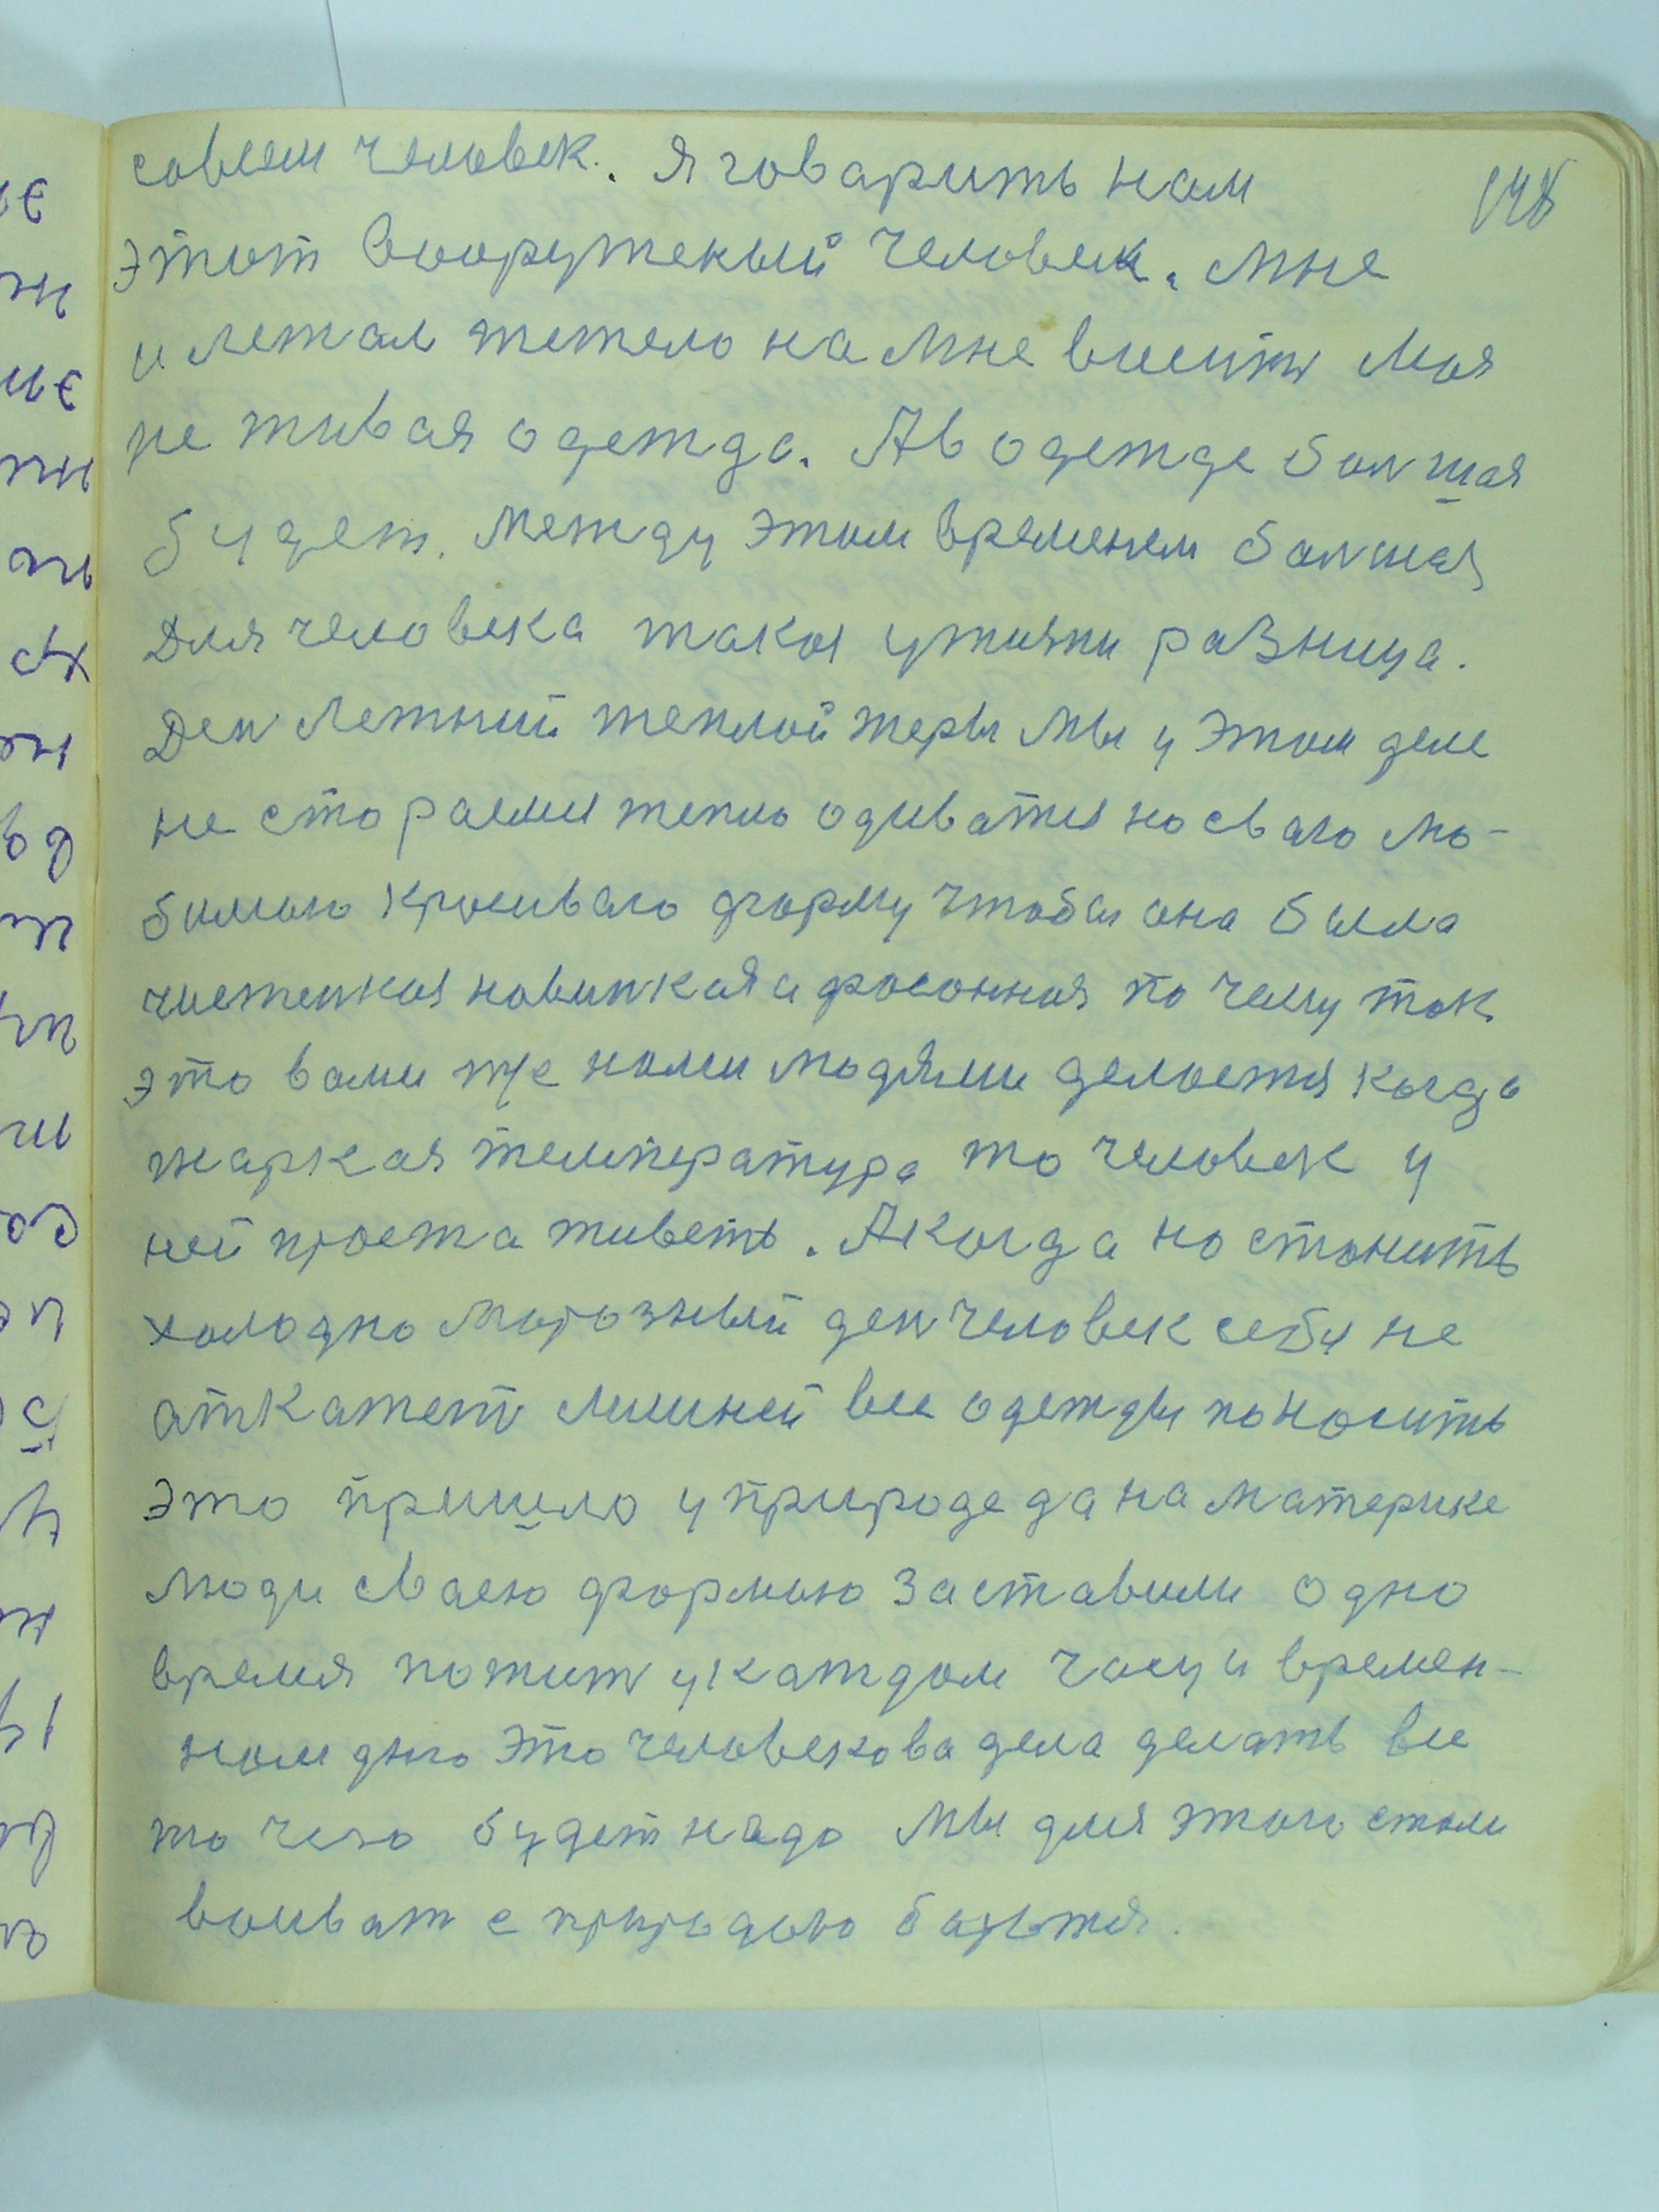 148
совсем человек. Я говарить нам
этот вооружекый человек. Мне
и летал тежело на мне висить моя
не живая одежда. А в одежде болшая
будет. Между этим временем болшая
для человека такая ужияти разница.
Ден летний теплой жеры мы у этом деле
не стораемся тепло одиватися но сваго лю-
бимою красиваго форму чтобы она была
чистенкая новинкая и фасонная по чему так
это вами же нами людями делается когда
жаркая температура то человек у
ней проста живеть. А когда но станить
холодно морозный ден человек себя не
аткажет лишней все одежды поносить
это пришло у природе да на материке
люди сваею формою заставили одно
время пожит у каждом часу и времен-
ном дню это человекова дела делать все
то чего будет надо мы для этого стали
воиват с природою боротся.